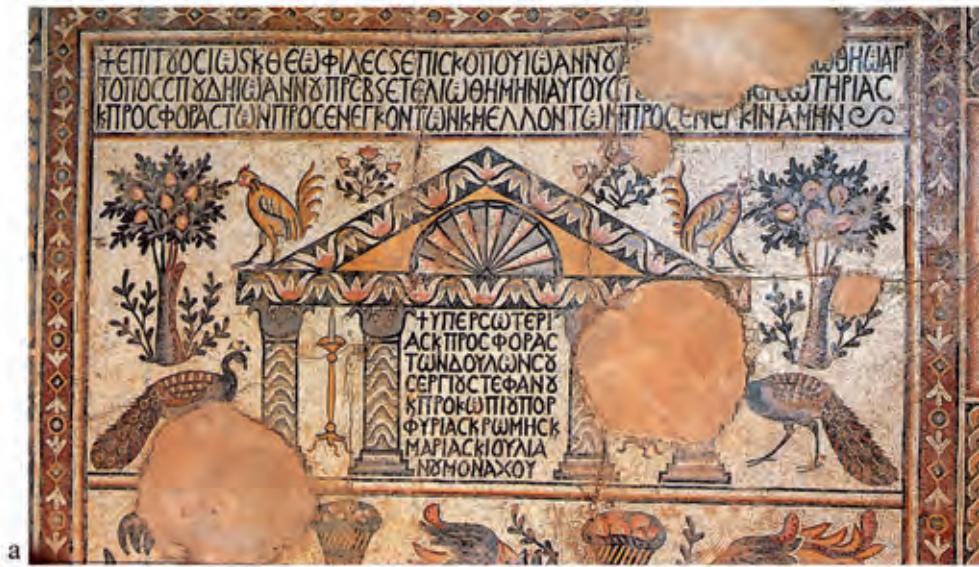 +ΕΠΙΤȢΟCΙѠSΚΘΕѠΦΙΛΕCSΕΠΙCΚΟΠΟΥΙѠΑΝΝΥ ΘΗѠΑΓ
ΤΟΠΟCCΠȢΔΗΙѠΑΝΝȢΠΡCΒSΕΤΕΛΙѠΘΗΜΗΝΙΑΥΓΟΥCΤ CѠΤΗΡΙΑC
ΚΠΡΟCΦΟΡΑCΤѠΝΠΡΟCΕΝΕΓΚΟΝΤѠΝΚΜΕΛΛΟΝΤѠΝΠΡΟCΕΝΕΓΚΙΝΑΜΗΝ
+ΥΠΕΡCѠΤΕΡΙ
ΑCΚΠΡΟCΦΟΡΑC
ΤѠΝΔΟΥΛѠΝCȢ
CΕΡΓΙȢCΤΕΦΑΝȢ
ΚΠΡΟΚѠΠΙȢΠΟΡ
ΦΥΡΙΑCΚΡѠΜΗCΚ
ΜΑΡΙΑCΚΙΟΥΛΙΑ
ΝȢΜΟΝΑΧΟΥ
a